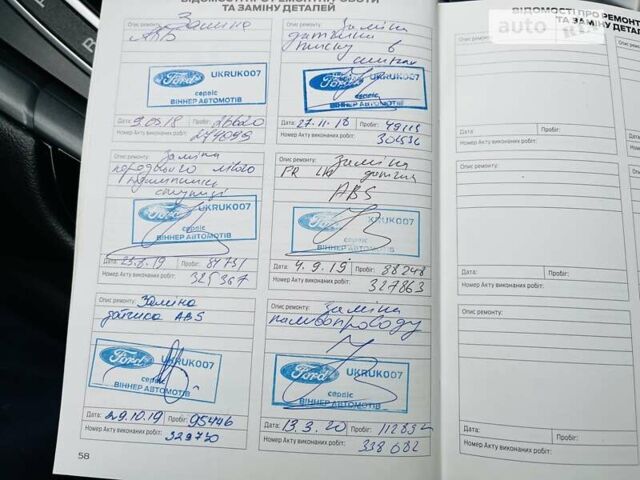 ВІДОМОСТІ ПРО РЕМОНТНІ РОБОТИ
ТА ЗАМІНУ ДЕТАЛЕЙ
Опис ремонту: Заміна
Ford UKRUK007
сервіс
ВІННЕР АВТОМОТІВ
Дата: 9.03.18 Пробіг: 26620
Номер Акту виконаних робіт:
274099
Опис ремонту: Заміна
датчика
тиску в
шинах
Ford UKRUK007
сервіс
ВІННЕР АВТОМОТІВ
Дата: 27.11.18 Пробіг: 49115
Номер Акту виконаних робіт:
306536
Опис ремонту: Заміна
переднього лівого
підшипника
ступиці
Ford UKRUK007
сервіс
ВІННЕР АВТОМОТІВ
Дата: 23.8.19 Пробіг: 84731
Номер Акту виконаних робіт:
325367
Опис ремонту: Заміна
PR LH датчика
ABS
Ford UKRUK007
сервіс
ВІННЕР АВТОМОТІВ
Дата: 4.9.19 Пробіг: 88248
Номер Акту виконаних робіт:
327863
Опис ремонту: Заміна
датчика ABS
Ford UKRUK007
сервіс
ВІННЕР АВТОМОТІВ
Дата: 29.10.19 Пробіг: 95446
Номер Акту виконаних робіт:
329730
Опис ремонту: Заміна
паливопроводу
Ford UKRUK007
сервіс
ВІННЕР АВТОМОТІВ
Дата: 13.3.20 Пробіг:
Номер Акту виконаних робіт:
338082
58
ВІДОМОСТІ ПРО РЕМОНТНІ
ТА ЗАМІНУ ДЕТАЛЕЙ
Опис ремонту:
Дата: Пробіг:
Номер Акту виконаних робіт:
Опис ремонту:
Дата: Пробіг:
Номер Акту виконаних робіт:
Опис ремонту:
Дата: Пробіг:
Номер Акту виконаних робіт:
auto RIA